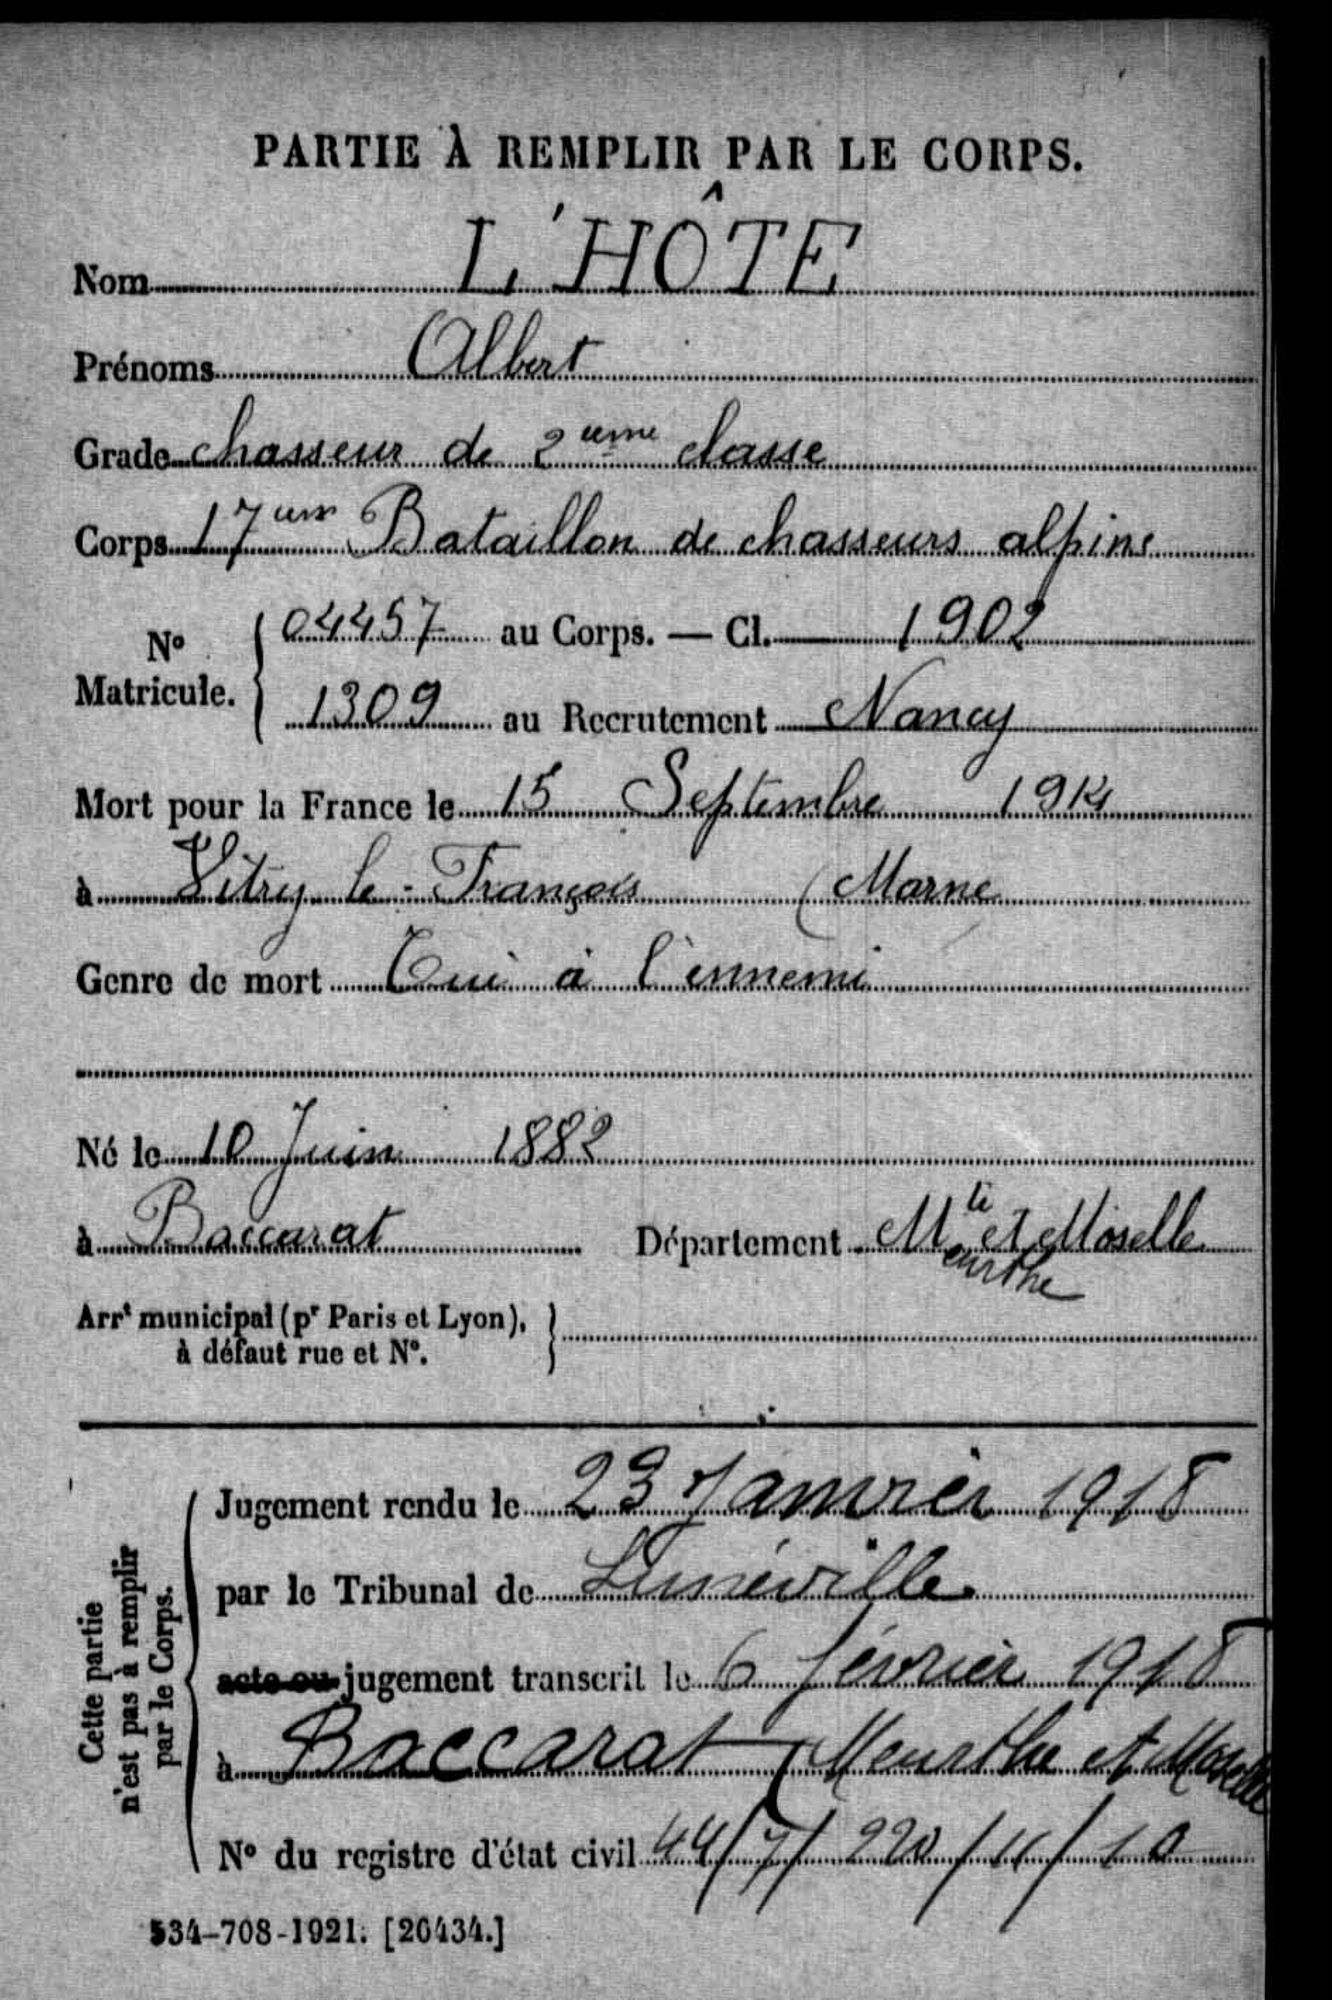 PARTIE À REMPLIR PAR LE CORPS.
Nom L'HÔTE
Prénoms Albert
Grade chasseur de 2ème classe
Corps 17ème Bataillon de chasseurs alpins
N° Matricule. { 04457 au Corps. — Cl. 1902
1309 au Recrutement Nancy
Mort pour la France le 15 Septembre 1914
à Vitry le-François (Marne
Genre de mort Tué à l'ennemi
Né le 10 Juin 1882
à Baccarat Département Meurthe et Moselle
Arrt municipal (pr Paris et Lyon), }
à défaut rue et N°.
Cette partie
n'est pas à remplir
par le Corps.
Jugement rendu le 23 Janvier 1918
par le Tribunal de Lunéville
acte ou jugement transcrit le 6 février 1918
à Baccarat (Meurthe et Moselle
N° du registre d'état civil 44/7/ 220 / 11 / 10
534-708-1921. [26434.]